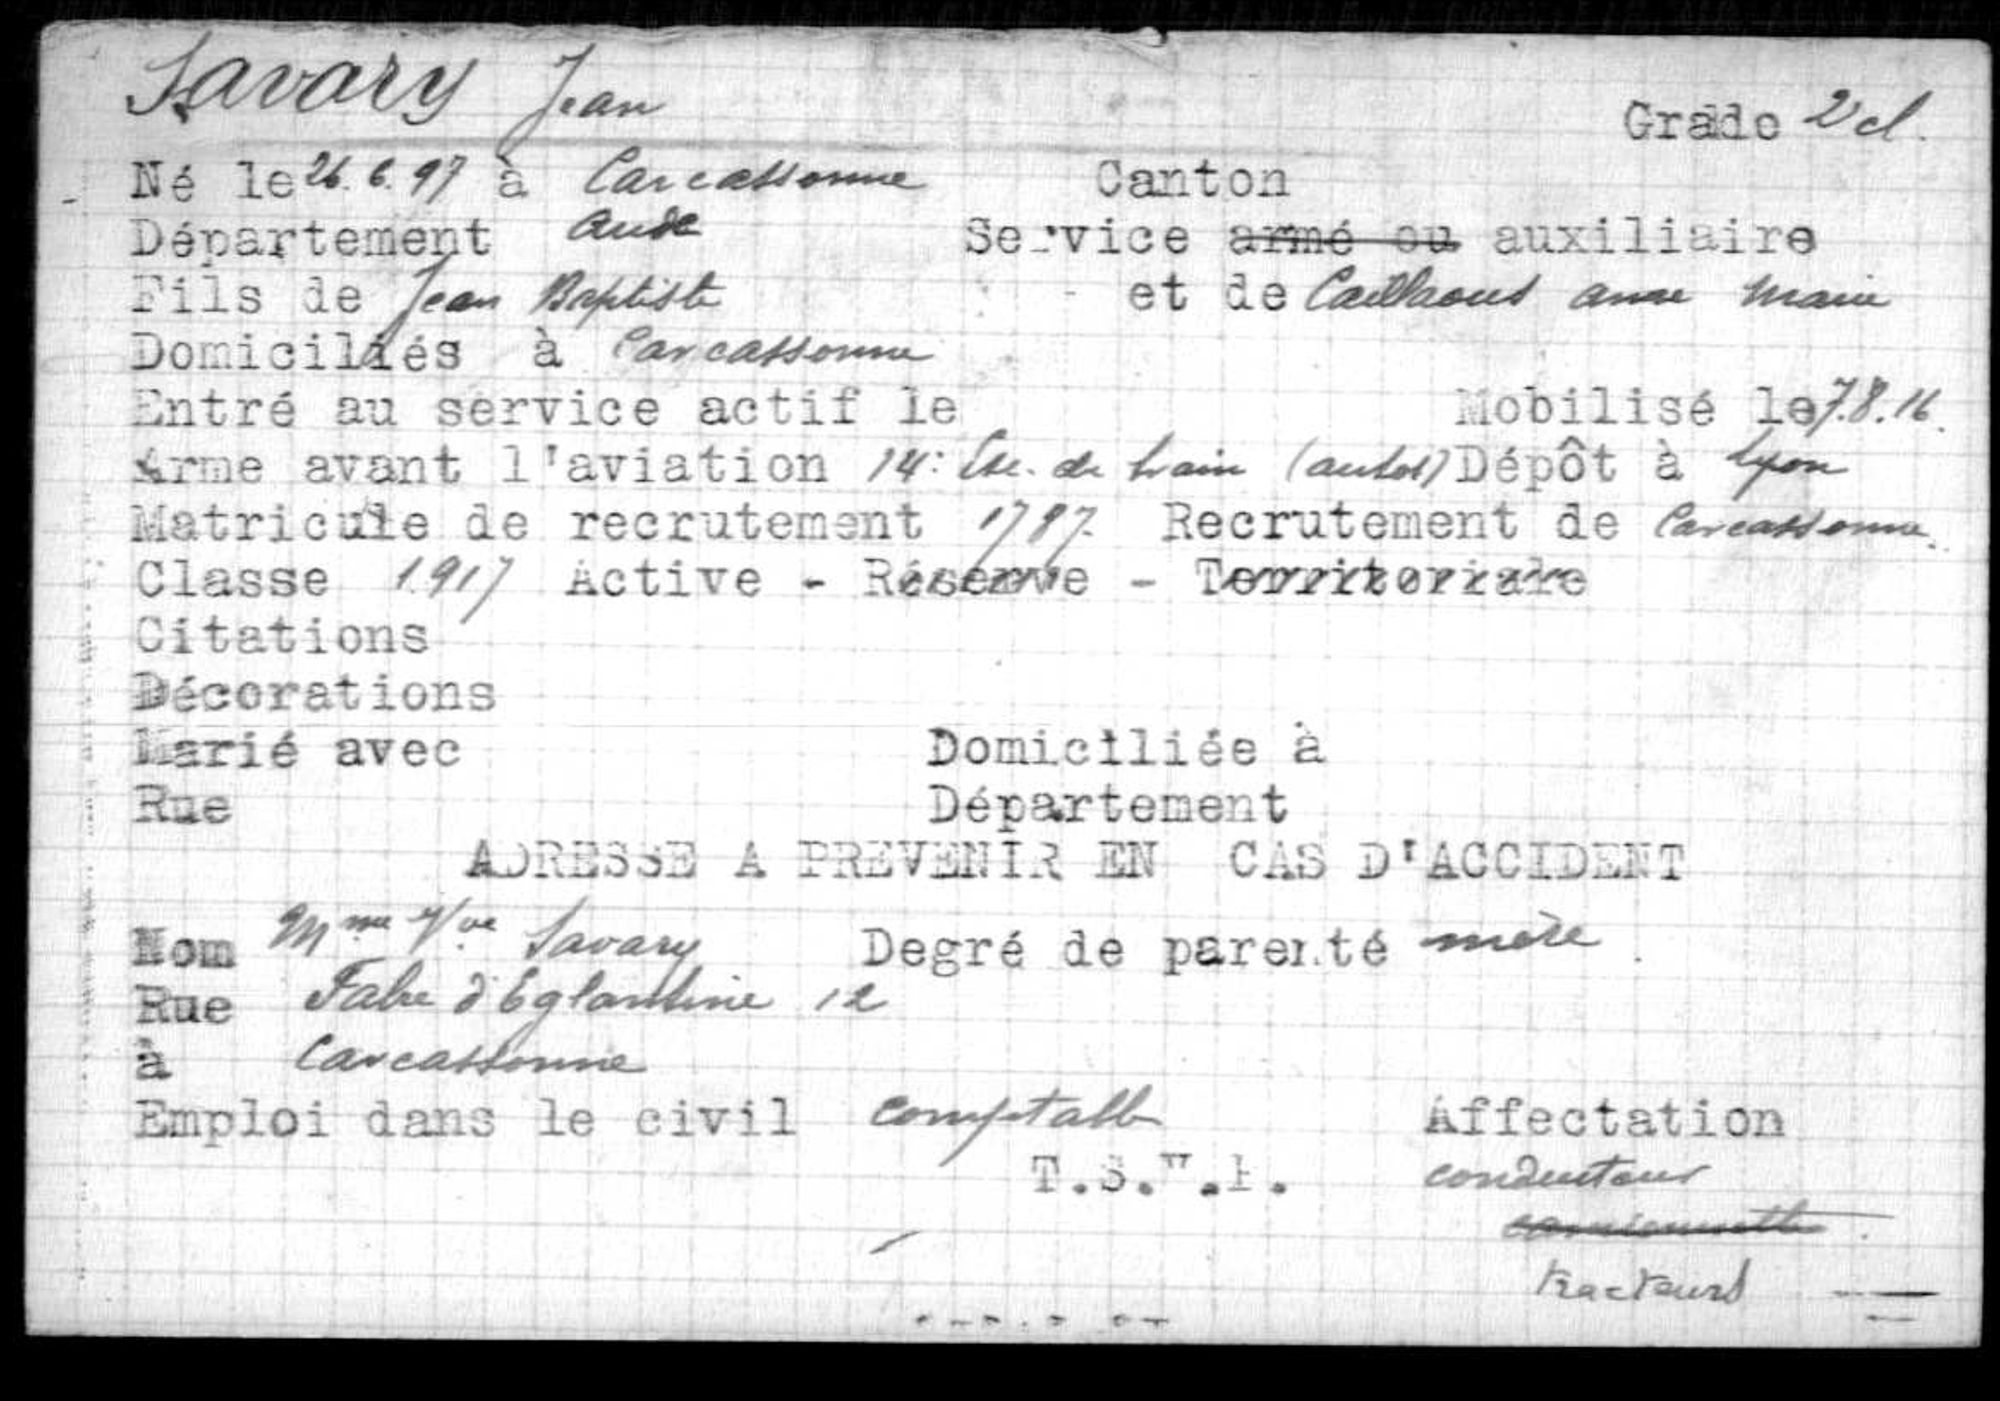 Savary Jean
Grade 2e cl.
Né le 26.6.97 à Carcassonne Canton
Département Aude Service armé ou auxiliaire
Fils de Jean Baptiste et de Anne Marie
Domiciliés à Carcassonne
Entré au service actif le Mobilisé le 7.8.16.
Arme avant l'aviation 14e Esc. du train (autos) Dépôt à Lyon
Matricule de recrutement 1787. Recrutement de Carcassonne.
Classe 1917 Active - Réserve - Territoriale
Citations
Décorations
Marié avec Domiciliée à
Rue Département
ADRESSE A PREVENIR EN CAS D'ACCIDENT
Nom Mme Vve Savary Degré de parenté mère
Rue Fabre d'Eglantine 12
à Carcassonne
Emploi dans le civil comptable Affectation
conducteur
tracteurs